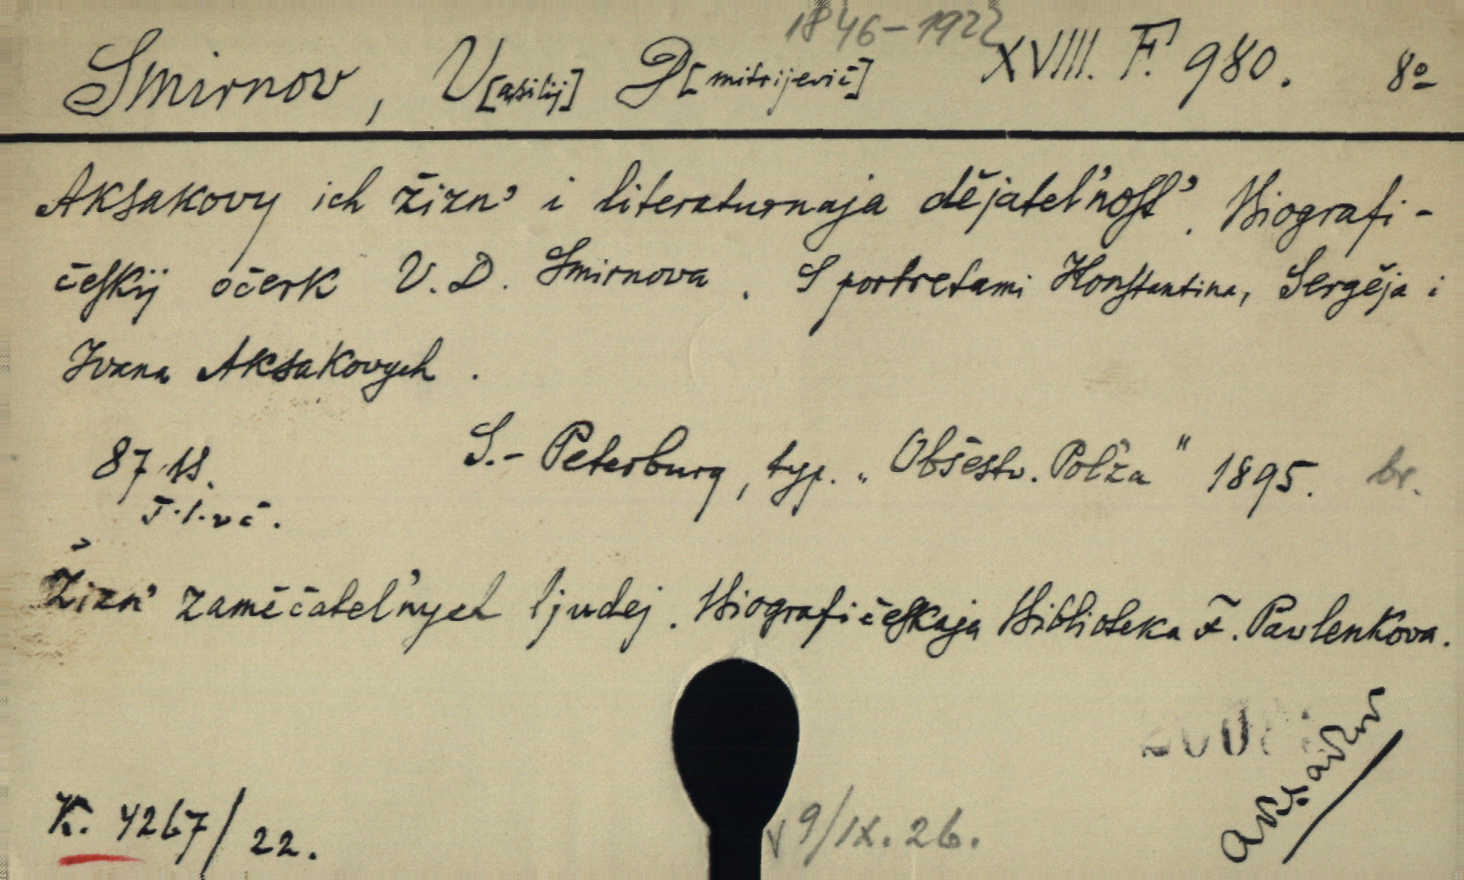 1846-1922
Smirnov, V[asilij] D[mitrijevič] XVIII. F. 980. 8º
Aksakovy ich žizn' i literaturnaja dějatel'nost'. Biografi-
českij očerk V. D. Smirnova. S portretami Konstantina, Sergěja i
Ivana Aksakovych.
87 S. S.-Peterburg, typ. „Obšestv. Pol'za" 1895. br.
Žizn' zaměčatel'nych ljudej. Biografičeskaja Biblioteka F. Pavlenkova.
Aksakov
K. 4267/22. 9/IX. 26.